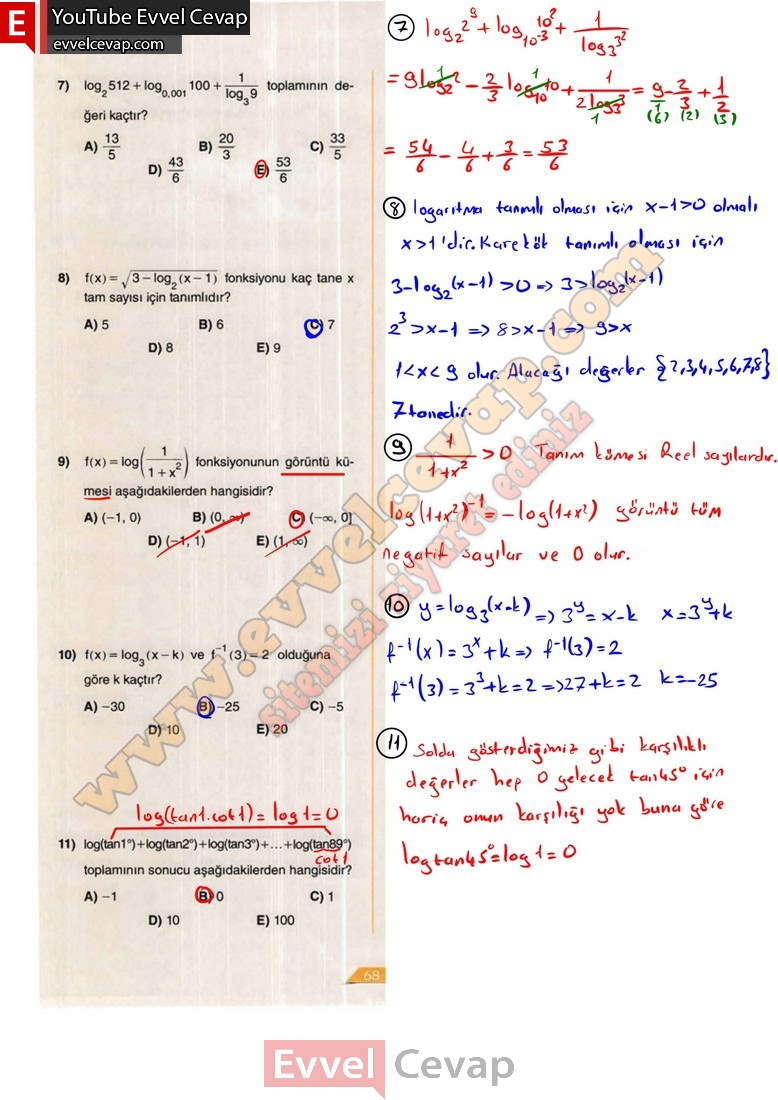 E YouTube Evvel Cevap
evvelcevap.com
7) log₂512 + log₀,₀₀₁100 + 1/log₃9 toplamının de-
ğeri kaçtır?
A) 13/5 B) 20/3 C) 33/5
D) 43/6 E) 53/6
8) f(x) = √(3 − log₂(x − 1)) fonksiyonu kaç tane x
tam sayısı için tanımlıdır?
A) 5 B) 6 C) 7
D) 8 E) 9
9) f(x) = log(1/(1 + x²)) fonksiyonunun görüntü kü-
mesi aşağıdakilerden hangisidir?
A) (−1, 0) B) (0, ∞) C) (−∞, 0]
D) (−1, 1) E) (1, ∞)
10) f(x) = log₃(x − k) ve f⁻¹(3) = 2 olduğuna
göre k kaçtır?
A) −30 B) −25 C) −5
D) 10 E) 20
log(tan1.cot1) = log1 = 0
11) log(tan1°)+log(tan2°)+log(tan3°)+...+log(tan89°)
cot1
toplamının sonucu aşağıdakilerden hangisidir?
A) −1 B) 0 C) 1
D) 10 E) 100
68
7 log₂2⁹ + log₁₀⁻³10² + 1/log₃3²
= 9log₂2 − 2/3 log₁₀10 + 1/(2log₃3) = 9/1 − 2/3 + 1/2
1 1 1 (6) (2) (3)
= 54/6 − 4/6 + 3/6 = 53/6
8 logaritma tanımlı olması için x−1>0 olmalı
x>1'dir. Karekök tanımlı olması için
3−log₂(x−1)>0 ⇒ 3>log₂(x−1)
2³>x−1 ⇒ 8>x−1 ⇒ 9>x
1<x<9 olur. Alacağı değerler {2,3,4,5,6,7,8}
7 tanedir.
9 1/(1+x²) > 0 Tanım kümesi Reel sayılardır.
log(1+x²)⁻¹ = −log(1+x²) görüntü tüm
negatif sayılar ve 0 olur.
10 y=log₃(x−k) ⇒ 3ʸ=x−k x=3ʸ+k
f⁻¹(x)=3ˣ+k ⇒ f⁻¹(3)=2
f⁻¹(3)=3³+k=2 ⇒ 27+k=2 k=−25
11 Solda gösterdiğimiz gibi karşılıklı
değerler hep 0 gelecek tan45° için
hariç onun karşılığı yok buna göre
logtan45°=log1=0
www.evvelcevap.com
sitemizi ziyaret ediniz
Evvel Cevap